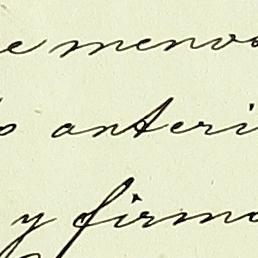 e menos
o anteri
y firmo